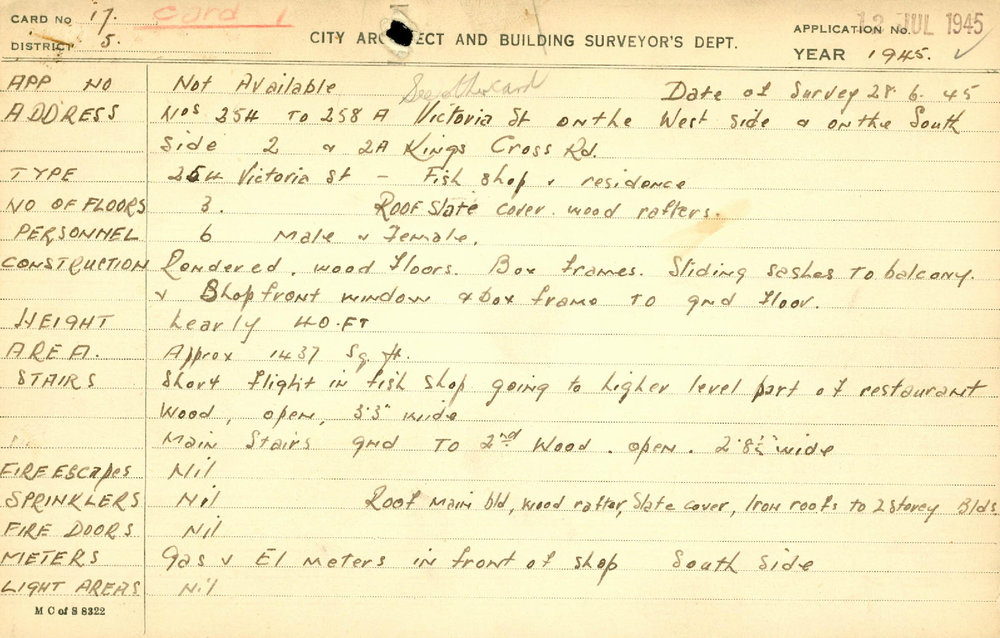 CARD No 17. Card 1
DISTRICT 5.
CITY ARCHITECT AND BUILDING SURVEYOR'S DEPT.
APPLICATION No. 12 JUL 1945
YEAR 1945. ✓
APP NO Not Available See other card Date of Survey 28.6.45
ADDRESS Nos 254 TO 258A Victoria St on the West side & on the South
Side 2 & 2A Kings Cross Rd.
TYPE 254 Victoria St – Fish Shop & residence
NO OF FLOORS 3. ROOF Slate cover. wood rafters.
PERSONNEL 6 Male & Female.
CONSTRUCTION Rendered, wood floors. Box frames. Sliding sashes to balcony.
& Shop front window & box frame TO gnd floor.
HEIGHT Nearly 40.FT
AREA. Approx 1437 Sq. ft.
STAIRS Short flight in fish shop going to higher level part of restaurant
Wood, open, 3'3" wide
" Main Stairs gnd TO 2nd Wood. open. 2'8½" wide
FIRE ESCAPES Nil
SPRINKLERS Nil Roof main bld, wood rafter, Slate cover, Iron roofs to 2 Storey Blds
FIRE DOORS Nil
METERS Gas & El meters in front of shop South Side
LIGHT AREAS Nil
M C of S 8322